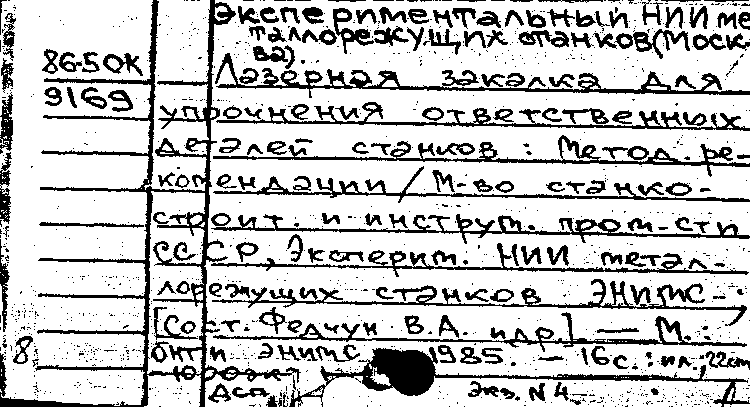 Экспериментальный НИИ ме
таллорежущих станков (Моск
ва).
86-5 ОК
9169
Лазерная закалка для
упрочнения ответственных
деталей станков : Метод. ре-
комендации / М-во станко-
строит. и инструт. пром-сти
СССР, Эксперим. НИИ метал-
лорежущих станков ЭНИМС-.
[Сост. Федчун В.А. и др.]. — М. :
8
ОНТИ ЭНИМС 1985. – 16 с. : ил., 22 см
ДСП Экз. N 4